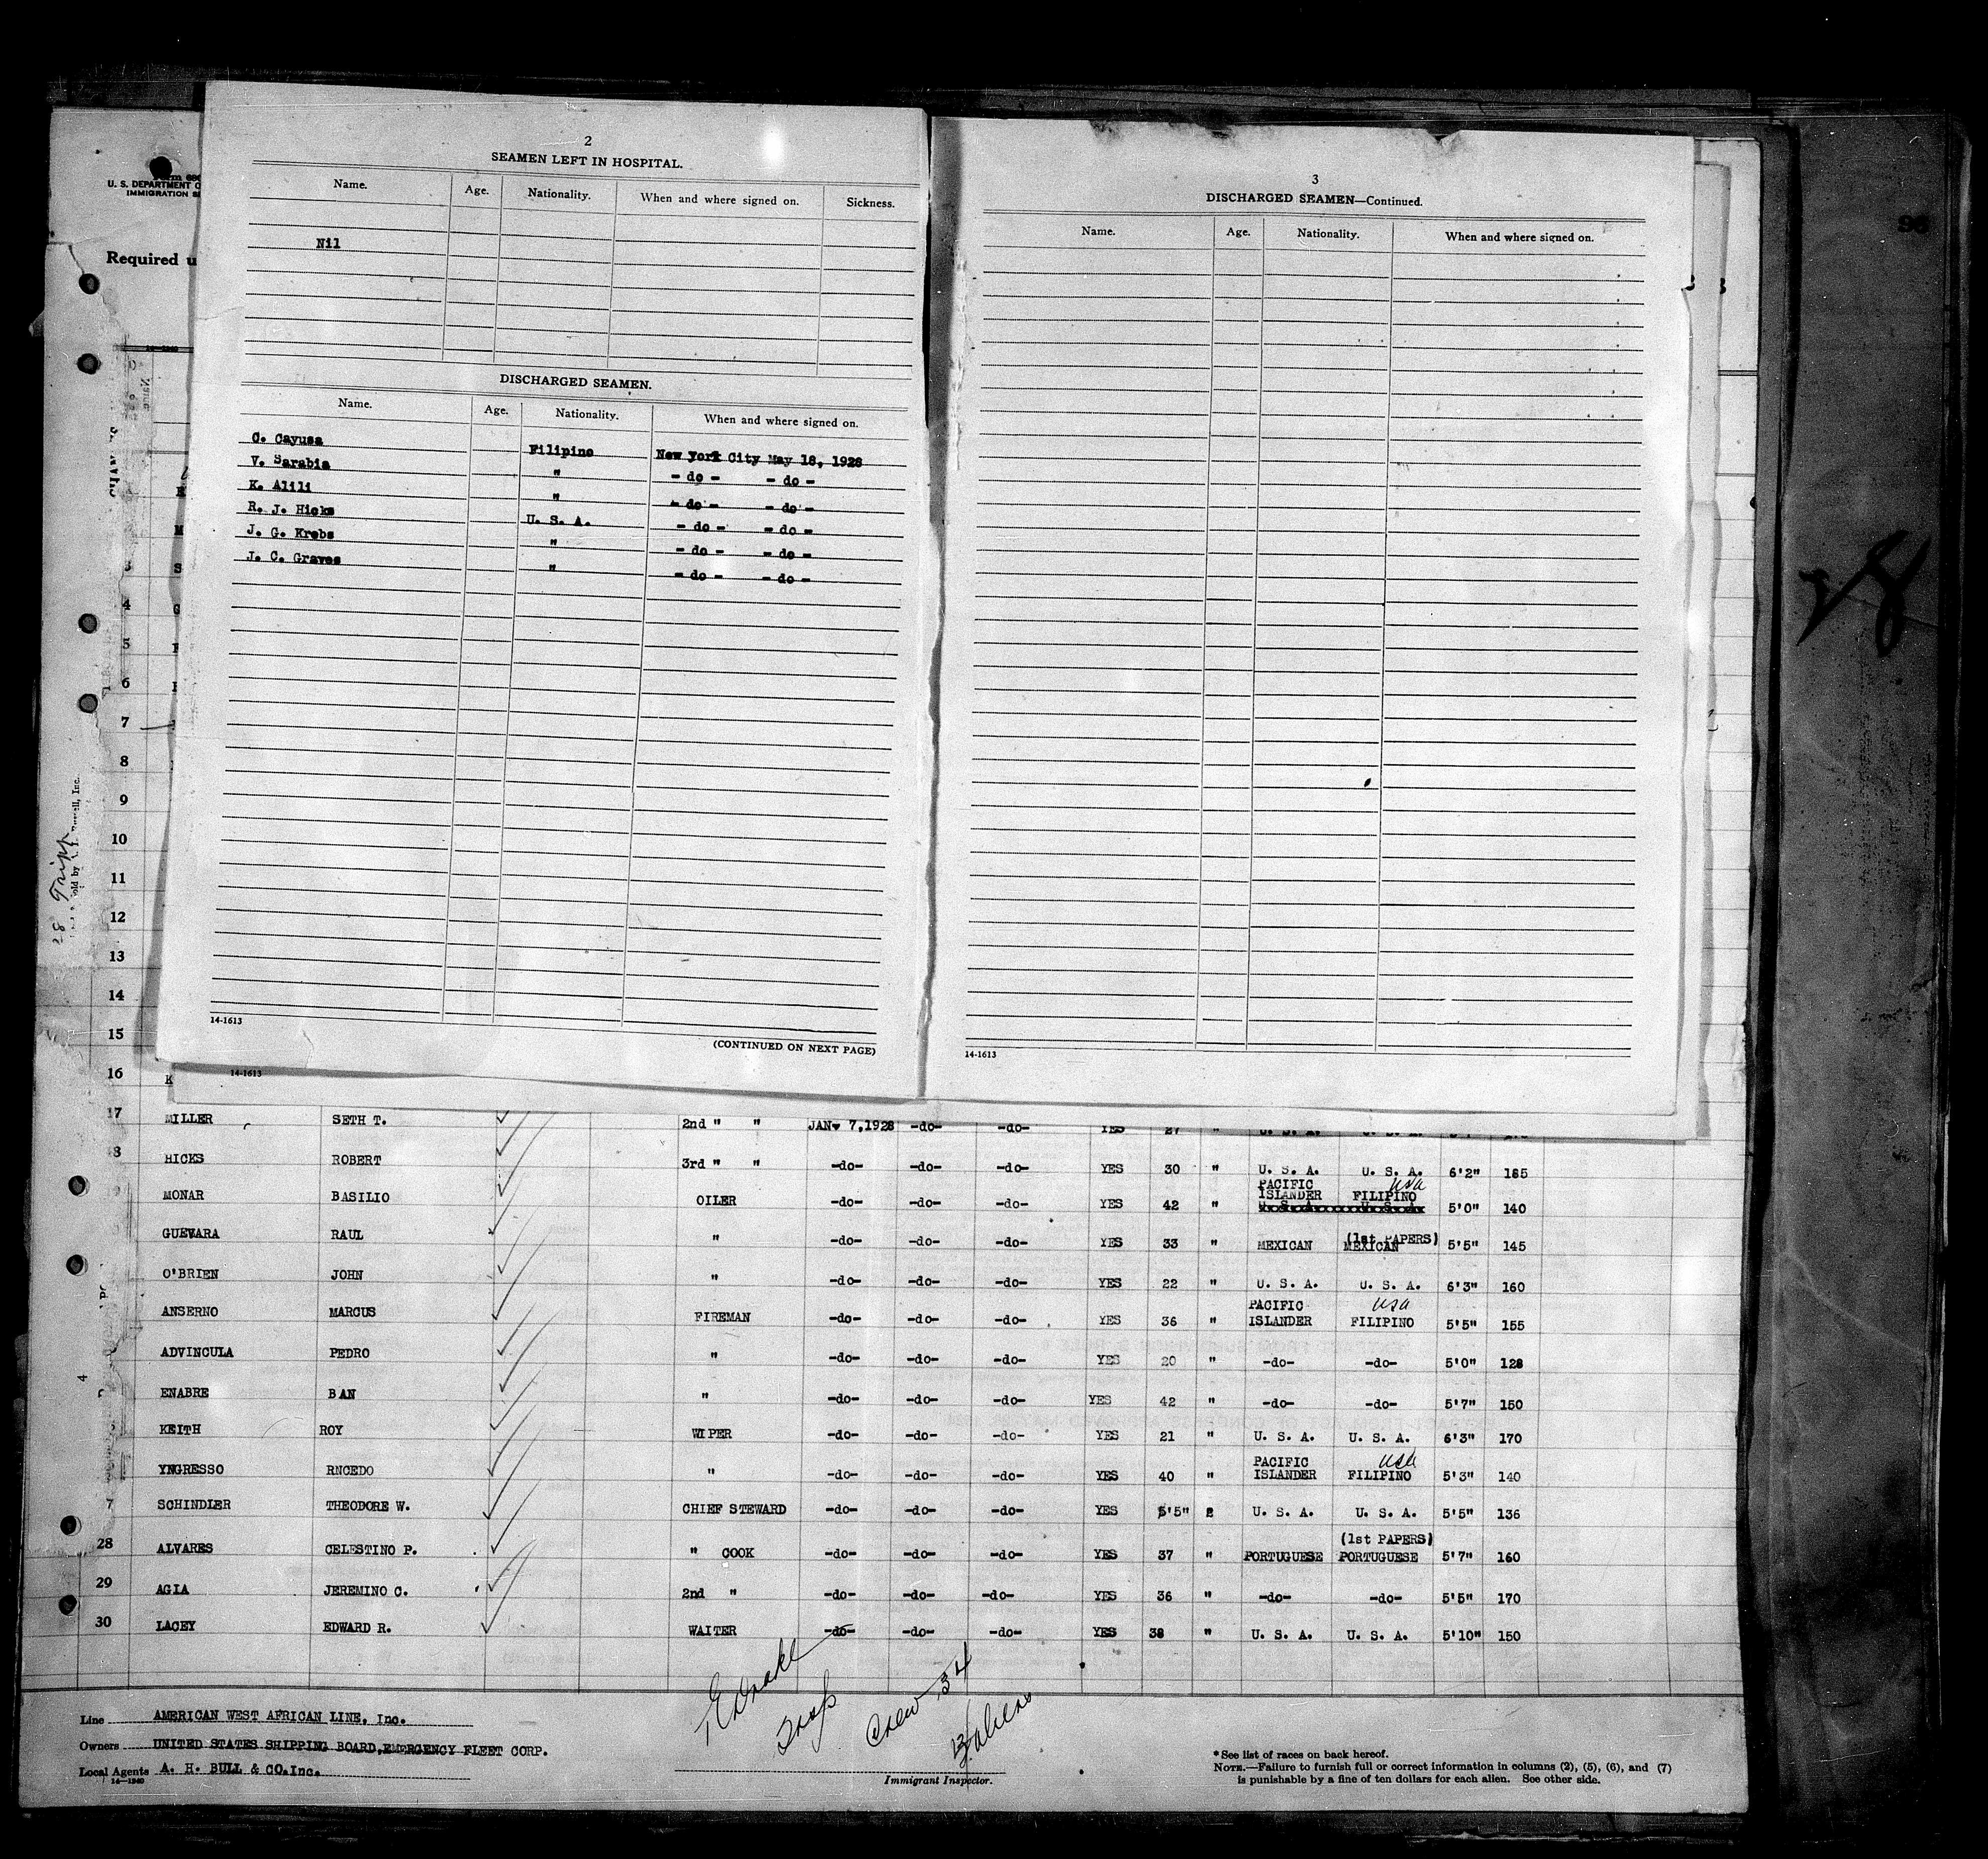 2
SEAMEN LEFT IN HOSPITAL.
Name. Age. Nationality. When and where signed on. Sickness.
Nil
DISCHARGED SEAMEN.
Name. Age. Nationality. When and where signed on.
C. Cayusa Filipino New York City May 18, 1928
V. Sarabia " - do - - do -
K. Alili " - do - - do -
R. J. Hicks U. S. A. - do - - do -
J. G. Krebs " - do - - do -
J. C. Graves " - do - - do -
14-1613
(CONTINUED ON NEXT PAGE)
3
DISCHARGED SEAMEN—Continued.
Name. Age. Nationality. When and where signed on.
14-1613
U. S. DEPARTMENT O
IMMIGRATION S
Required u
96
3
4
5
6
7
8
9
10
11
12
13
14
15
16 K
14-1613
17 MILLER SETH T. 2nd " " JAN. 7,1928 -do- -do- YES 27 " U. S. A. U. S. A.
8 HICKS ROBERT 3rd " " -do- -do- -do- YES 30 " U. S. A. U. S. A. 6'2" 185
PACIFIC usa
MONAR BASILIO OILER -do- -do- -do- YES 42 " ISLANDER FILIPINO 5'0" 140
U. S. A. U. S. A.
GUEVARA RAUL " -do- -do- -do- YES 33 " MEXICAN MEXICAN (1st PAPERS) 5'5" 145
O'BRIEN JOHN " -do- -do- -do- YES 22 " U. S. A. U. S. A. 6'3" 160
PACIFIC usa
ANSERNO MARCUS FIREMAN -do- -do- -do- YES 36 " ISLANDER FILIPINO 5'5" 155
ADVINCULA PEDRO " -do- -do- -do- YES 20 " -do- -do- 5'0" 128
4
ENABRE BAN " -do- -do- -do- YES 42 " -do- -do- 5'7" 150
KEITH ROY WIPER -do- -do- -do- YES 21 " U. S. A. U. S. A. 6'3" 170
PACIFIC usa
YNGRESSO RNCEDO " -do- -do- -do- YES 40 " ISLANDER FILIPINO 5'3" 140
7 SCHINDLER THEODORE W. CHIEF STEWARD -do- -do- -do- YES 5'5" U. S. A. U. S. A. 5'5" 136
(1st PAPERS)
28 ALVARES CELESTINO P. " COOK -do- -do- -do- YES 37 " PORTUGUESE PORTUGUESE 5'7" 160
29 AGIA JEREMINO C. 2nd " -do- -do- -do- YES 36 " -do- -do- 5'5" 170
30 LACEY EDWARD R. WAITER -do- -do- -do- YES 38 " U. S. A. U. S. A. 5'10" 150
Crew 34
Line AMERICAN WEST AFRICAN LINE, Inc.
Owners UNITED STATES SHIPPING BOARD,EMERGENCY FLEET CORP.
Local Agents A. H. BULL & CO.Inc.
14-1240
Immigrant Inspector.
*See list of races on back hereof.
NOTE.—Failure to furnish full or correct information in columns (2), (5), (6), and (7)
is punishable by a fine of ten dollars for each alien. See other side.